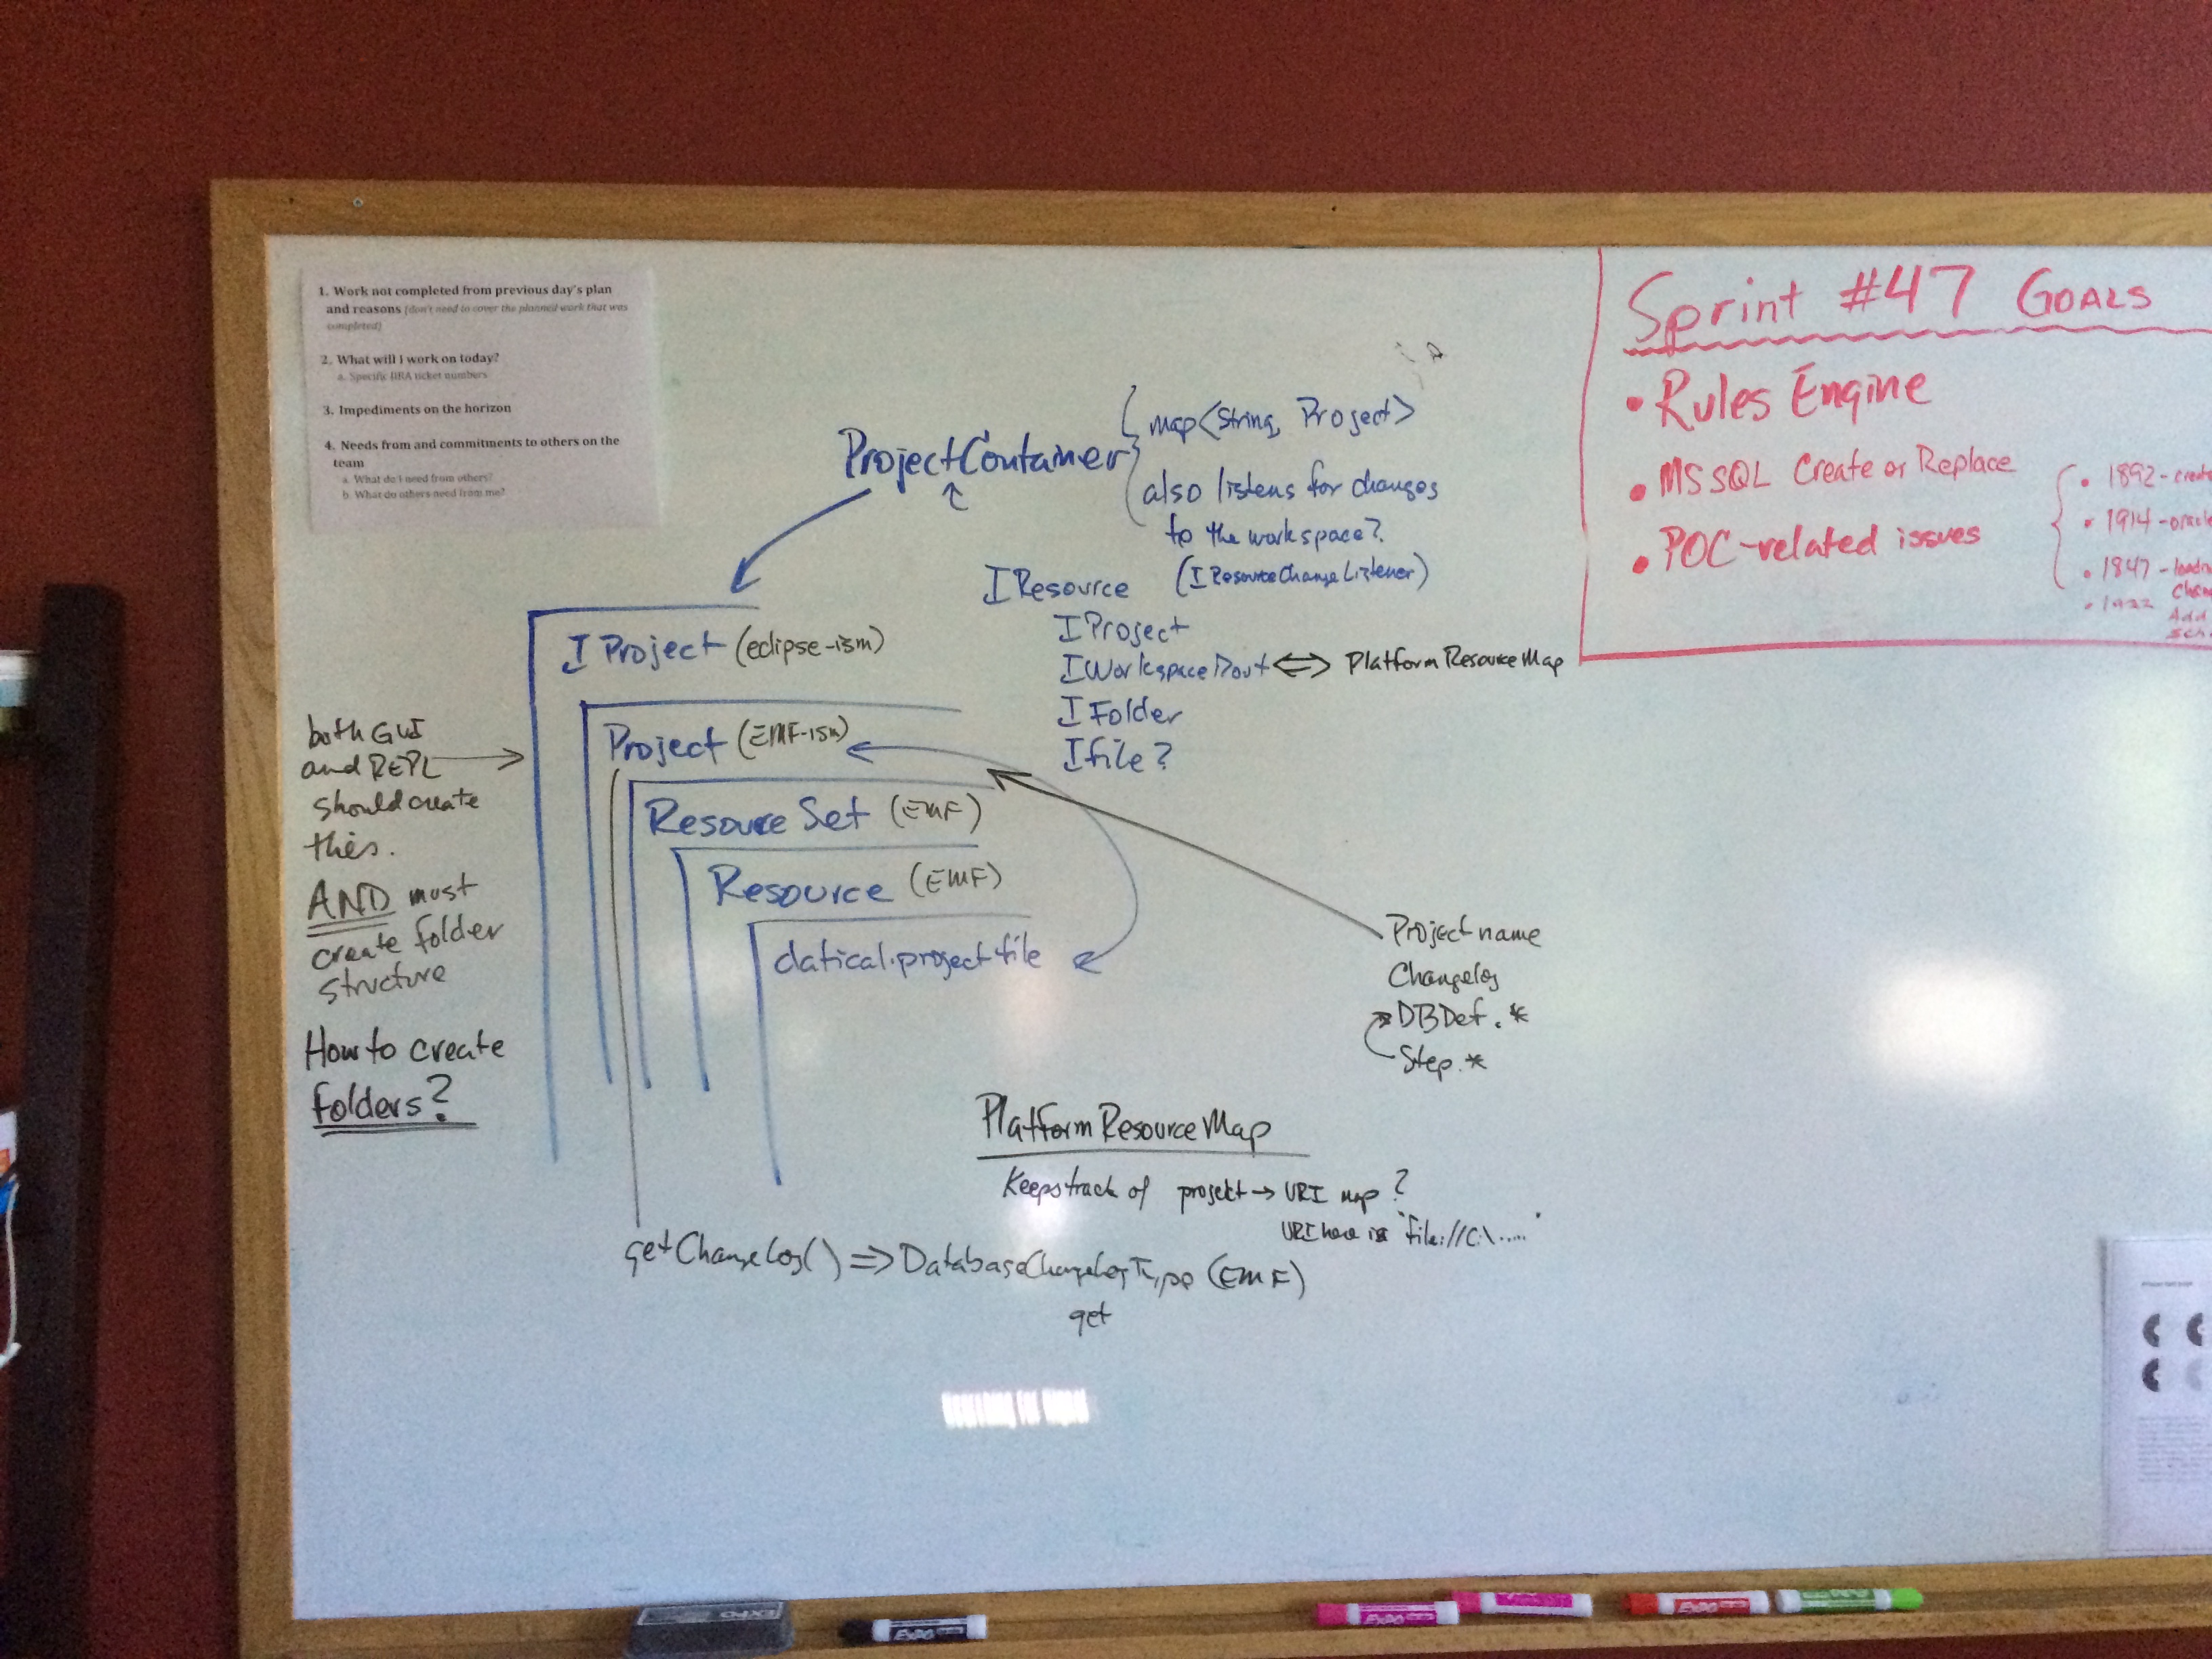 1. Work not completed from previous day's plan
and reasons (don't need to cover the planned work that was
completed)
2. What will I work on today?
a. Specific JIRA ticket numbers
3. Impediments on the horizon
4. Needs from and commitments to others on the
team
a. What do I need from others?
b. What do others need from me?
Sprint #47 GOALS
• Rules Engine
• MSSQL Create or Replace
• POC-related issues
• 1892 - create
• 1914 - oracle
• 1847 - loadin
chan
Add
sch
ProjectContainer
map<String, Project>
also listens for changes
to the workspace?
(IResourceChangeListener)
IResource
IProject
IWorkspaceRoot <=> PlatformResourceMap
IFolder
Ifile?
IProject (eclipse-ism)
Project (EMF-ism)
Resource Set (EMF)
Resource (EMF)
datical.project file
both GUI
and REPL
should create
this.
AND must
create folder
structure
How to create
folders?
Project name
Changelog
DBDef.*
Step.*
PlatformResourceMap
Keeps track of project → URI map?
URI here is "file://C:\....."
getChangeLog() => DatabaseChangeLogType (EMF)
get
EXPO
EXPO
EXPO
EXPO